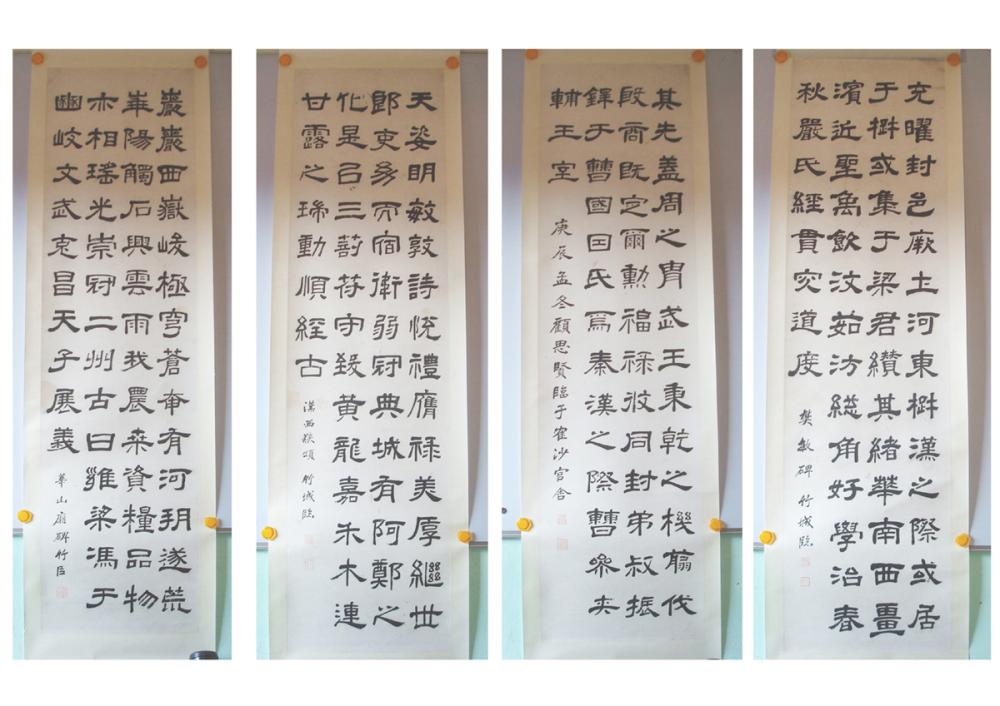 充曜封邑厥土河東楙漢之際或居
于楙或集于梁君纘其緒華南西畺
濱近聖禹飲汶茹汸總角好學治春
秋嚴氏經貫究道度
樊敏碑 竹城臨
其先蓋周之胄武王秉乾之機翦伐
殷商既定爾勳福祿攸同封弟叔振
鐸于曹國因氏焉秦漢之際曹參夾
輔王室
庚辰孟冬顧思賢臨于崔沙宮舍
天姿明敏敦詩悅禮膺祿美厚繼世
郎吏幼而宿衛弱冠典城有阿鄭之
化是以三剖符守致黃龍嘉禾木連
甘露之瑞動順經古
漢西狹頌 竹城臨
巖巖西嶽峻極穹蒼奄有河朔遂荒
華陽觸石興雲雨我農桑資糧品物
亦相瑤光崇冠二州古曰雍梁馮于
豳岐文武克昌天子展義
華山廟碑竹臣